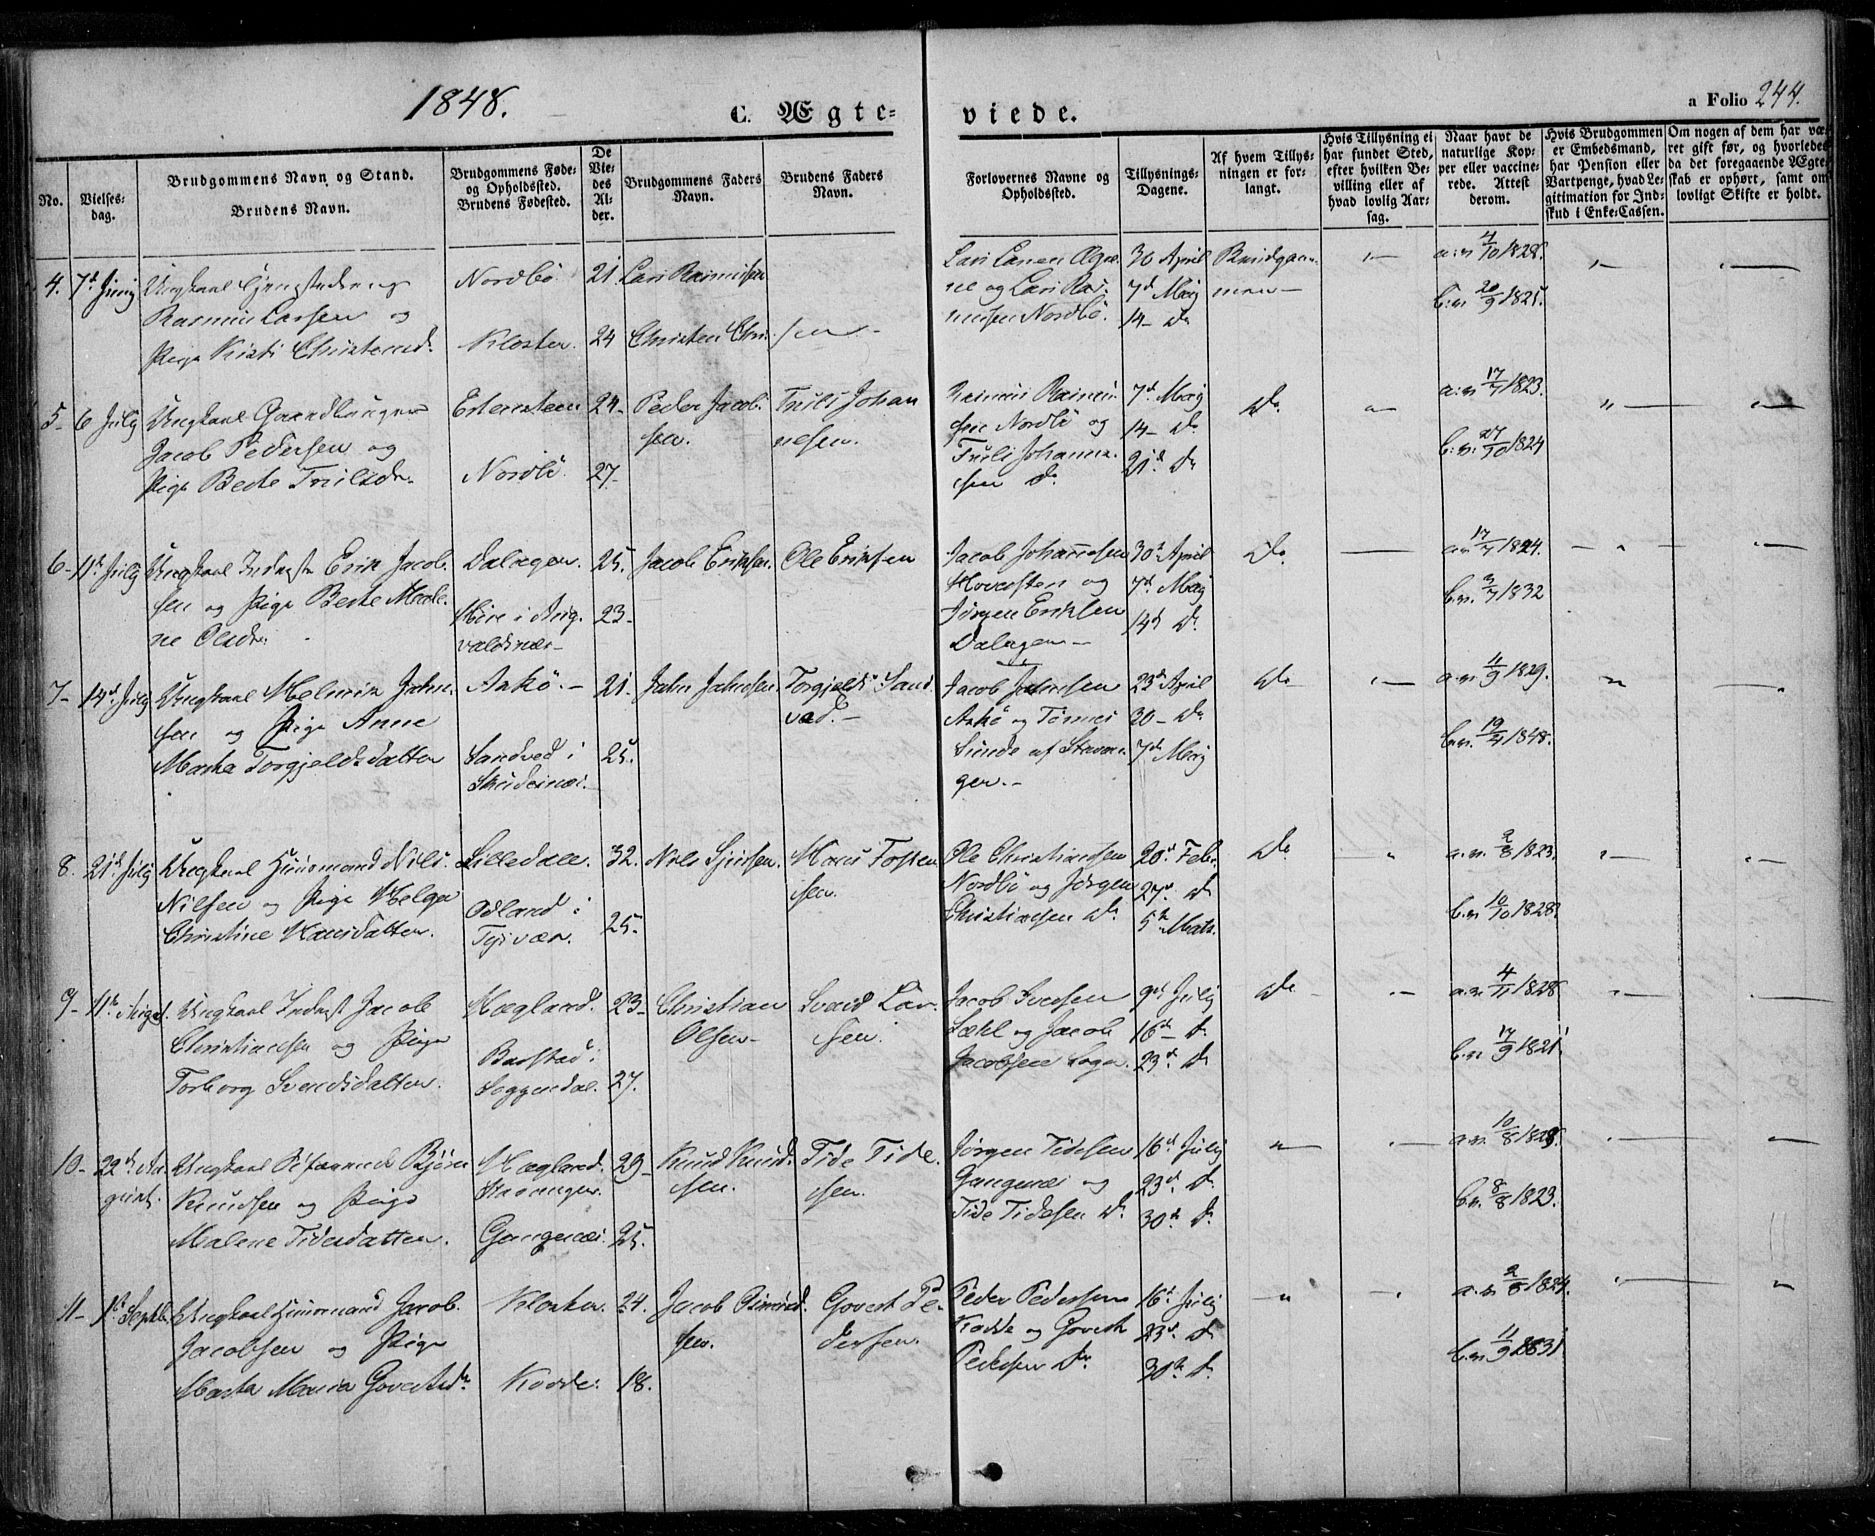 1848.
C. Ægte-
viede.
a Folio 244.
No.
Vielses-
dag.
Brudgommens Navn og Stand.
Brudens Navn.
Brudgommens Føde-
og Opholdssted.
Brudens Fødested.
De
Vie-
des
Al-
der.
Brudgommens Faders
Navn.
Brudens Faders
Navn.
Forlovernes Navne og
Opholdssted.
Tillysnings-
Dagene.
Af hvem Tillys-
ningen er for-
langt.
Hvis Tillysning ei
har fundet Sted,
efter hvilken Be-
villing eller af
hvad lovlig Aar-
sag.
Naar havt de
naturlige Kop-
per eller vaccine-
rede. Attest
derom.
Hvis Brudgommen
er Embedsmand,
har Pension eller
Vartpenge, hvad Le-
gitimation for Ind-
skud i Enke-Cassen.
Om nogen af dem har væ-
ret gift før, og hvorledes
da det foregaaende Ægte-
skab er ophørt, samt om
lovligt Skifte er holdt.
4. 7d Juny Ungkarl
Rasmus Larsen og
Pige Kisti Christensd.
Nordbö
Kloster.
21.
24
Lars Rasmussen
Christen Chri-
sen
Lars Larsen
og Lars Ras-
mussen Nordbö.
30 April
7d May
14- Do
Brudgom-
men
a.v. 4/10 1828.
b.v. 20/9 1825.
5- 6 July Ungkarl
Jacob Pedersen og
Pige Berte Truilsdr.
Nordbö.
24-
27-
Peder Jacob-
sen.
Truls Johan
nesen.
Rasmus Rasmus-
sen Nordbö og
Truls Johannes-
sen Do
7d May
14- Do
21d Do
Do
a.v. 17/7 1823.
b.v. 27/10 1824
6- 11t July Ungkarl Inderst Erik Jacob-
sen og Pige Berte Mal-
ne Olsdr.
Dalagen.
i Aug-
valdsnæs-
25.
23-
Jacob Eriksen.
Ole Eriksen
Jacob Johannesen
og
Jörgen Eriksen
Dalagen
30t April
7d May
14d Do
Do
a.v. 17/7 1824.
b.v. 3/7 1832
7- 14d July Ungkarl John-
sen og Pige Anne
Marta Torgjeldsdatter
Askö.-
Sandved i
Skudesnæs.
21.
25.
John Johnsen
Torgjeld Sand
ved.-
Jacob Johnsen
Askö og Tönnes
Sunde af Stavan-
ger.-
23d April
30- Do
7d May
Do
a.v. 4/9 1829.
b.v. 19/4 1848.
8. 21d July Ungkarl Huusmand Nils
Nilsen og Pige Helga
Christine Hansdatter.
Lilledale.
Odland i
Tysvær.
32.
25.
Nils Sjursen
Hans Tosten
sen.
Ole Christiansen
Nordbö og Jörgen
Christiansen Do
20d Feb.
27d Do
5t Marts.
Do
a.v. 2/8 1823.
b.v. 10/10 1828.
9- 11t August Ungkarl Inderst Jacob
Christiansen og Pige
Torborg Svendsdatter.
Hægland.
Barstad i
Soggendal.
23-
27.
Christian
Olsen-
Svend Lar-
sen.
Jacob Iversen
og Jacob
Jacobsen
9d July
16d- Do
23d Do
Do
a.v. 4/11 1828.
b.v. 17/9 1821.
10- 22d Au
gust. Ungkarl Björn
Knudsen og Pige
Malene Tidesdatter.
Hægland.
Stavanger.
Gangenæs.
29-
25.
Knud Knud-
sen.
Tide Tide-
sen.
Jörgen Tidesen
Gangenæs og
Tide Tidesen Do
16d July
23d. Do
30d Do
a.v. 10/8 1828.
b.v. 8/8 1823.
11- 1t Septbr. Ungkarl Huusmand Jacob
Jacobsen og Pige
Marta Maria Govertsd.
Kloster
Kodde.
24.
18.
Jacob
sen.
Govert Pe-
dersen.
Peder Pedersen
Kodde og Govert
Pedersen Do
16d July
23d. Do
30th Do
a.v. 2/8 1824.
b.v. 11/9 1831